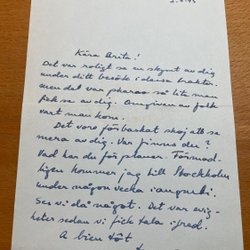 Kära Brita!
Det var roligt se en skymt av dig
under ditt besök i dessa trakter.
men det var så lite man
fick se av dig. Omgiven av folk
vart man kom.
Det vore förbaskat skoj att se
mera av dig. Var finnes du?
Vad har du för planer. Förmod-
ligen kommer jag till Stockholm
under någon vecka i augusti.
Ses vi då något. Det var evig-
heter sedan vi fick tala i fred.
A bien tôt